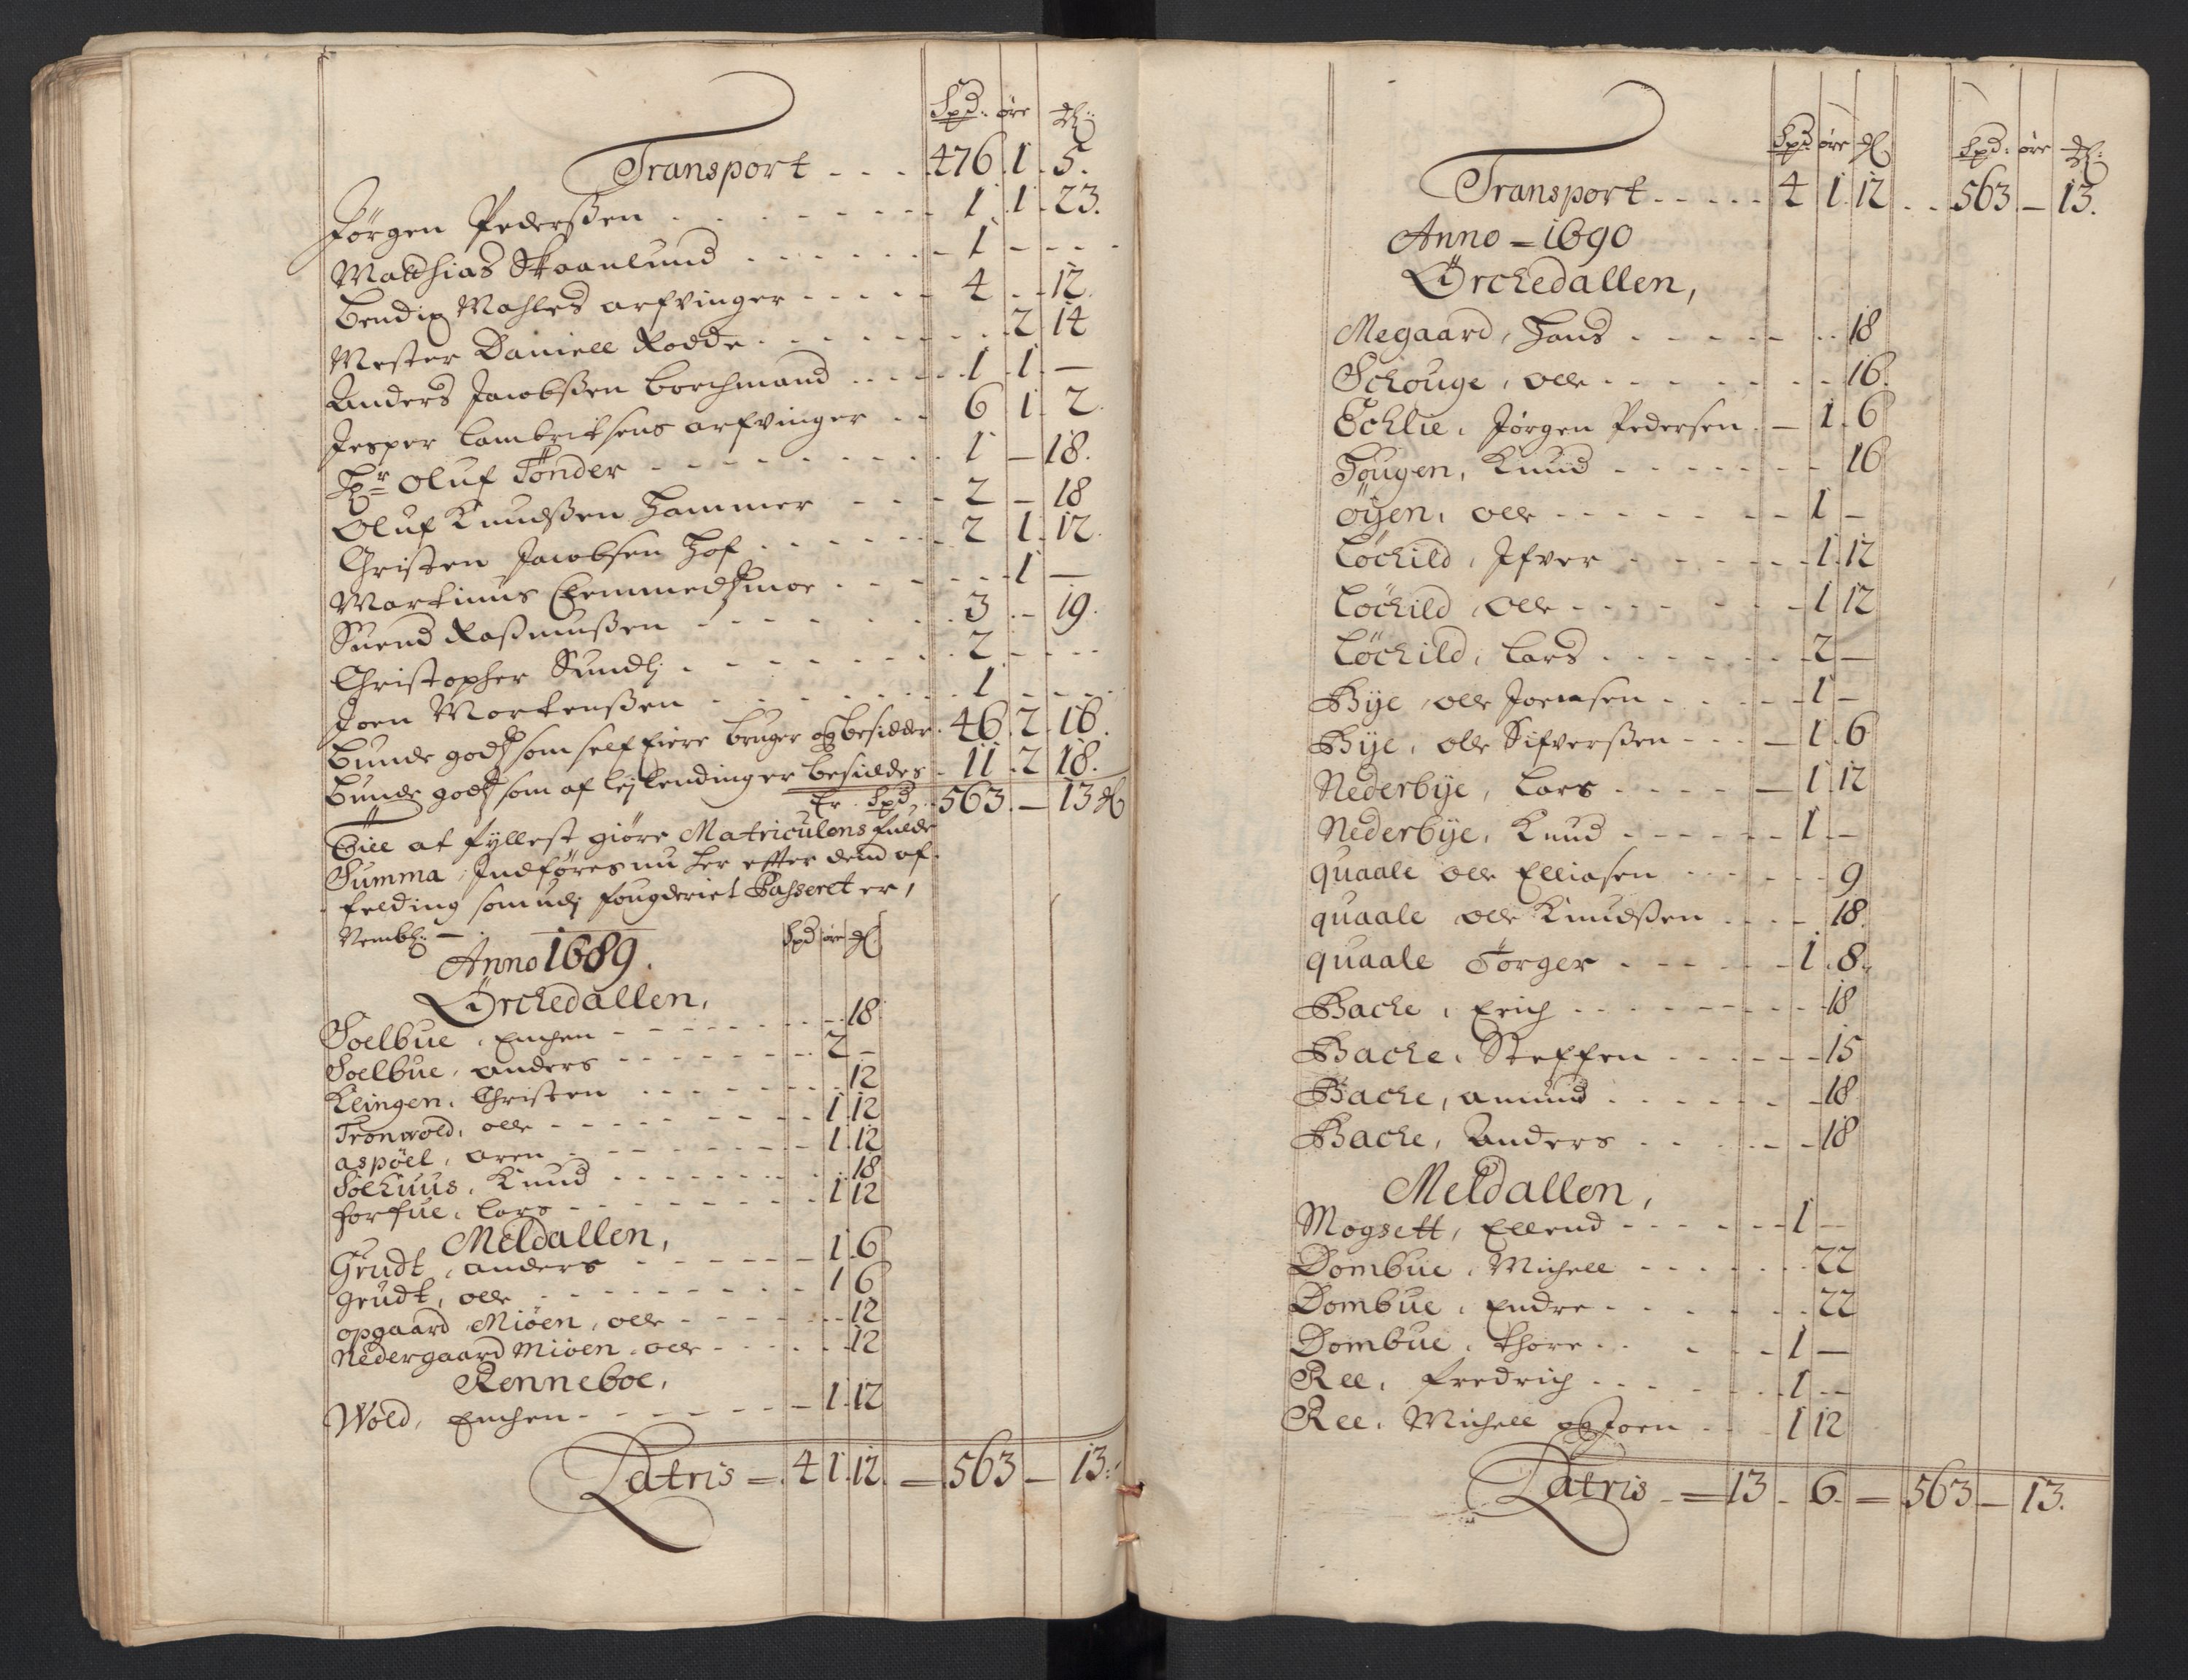 Spd: øre ₰:
Transport - - - 476. 1. 5.
Jørgen Pederßen - - - 1. 1. 23.
Matthias Skaanlund - - - 1 - - -
Bendix Mahles arfvinger - - - 4 - 12.
Mester Daniell Rodde - - - 2 14
Anders Jacobßen Borchmand - - - 1. 1. —
Jesper Lambrichsens arfvinger - - 6 1. 2.
Hr Oluf Tønder - - - 1 — 18.
Oluf Knudßen Hammer - - - 2 — 18
Christen Jacobsen Hof - - - 2 1. 12.
Martinus Chemmedsmoe - - - 1 —
Suend Raßmußen - - - 3 - 19.
Christopher Sundli - - - 2 - - -
Joen Mortenßen - - - 1 - - -
Bunde godtz som self Eiere bruger og besidder. 46. 2. 16.
Bunde godtz som af leylendinger besiddes - 11. 2. 18.
Er Spd. 563. — 13 ₰
Till at fyllest giøre Matriculens fulde
Summa, Indføres nu her efter dend af-
felding som udi fougderiet Passeret er,
Nembl: — Spd øre ₰.
Anno 1689.
Örchedallen,
Soelbue, Enchen - - - 18
Soelbue, anders - - - 2 —
Klingen, Christen - - - 12
Tronwold, olle - - - 1 12
aspöel, aren - - - 1. 12
Solhuus, Knud - - - 18
forfue, lars - - - 1 12
Meldallen,
Grudt, anders - - - 1. 6
grudt, olle - - - 1 6
opgaard Miöen, olle - - - 12
Nedergaard Miöen, olle - - - 12
Renneboe,
Wold, Enchen - - - 1. 12
Latris = 4 1. 12. = 563 — 13.

Spd øre ₰ Spd: øre ₰:
Transport - - - 4 1. 12 - - 563 — 13.
Anno = 1690
Örchedallen,
Megaard, Hans - - - 18
Schouge, olle - - - 16.
Echlie, Jørgen Pedersen - — 1. 6
Tøugen, Knud - - - 16
öyen, olle - - - 1 —
Löchild, Ifver - - - 1. 12
Löchild, olle - - - 1 12
Löchild, lars - - - 2 —
Bye, olle Joensen - - - 1 —
Bye, olle Sifverßen - - - 1. 6
Nederbye, lars - - - 1 12
Nederbye, Knud - - - 1 —
quaale olle Elliasen - - - 9
quaale olle Knudßen - - - 18.
quaale Törger - - - 1. 8.
Bache, Erich - - - 18
Bache, Steffen - - - 15
Bache, amund - - - 18
Bache, Anders - - - 18
Meldallen,
Mogsett, Ellend - - - 1 —
Dombue, Michell - - - 22
Dombue, Endre - - - 22
Dombue, thore - - - 1 —
Ree, fredrich - - - 1 —
Ree, Michell og Joen - - 1 12
Latris = 13 - 6 = 563 — 13.